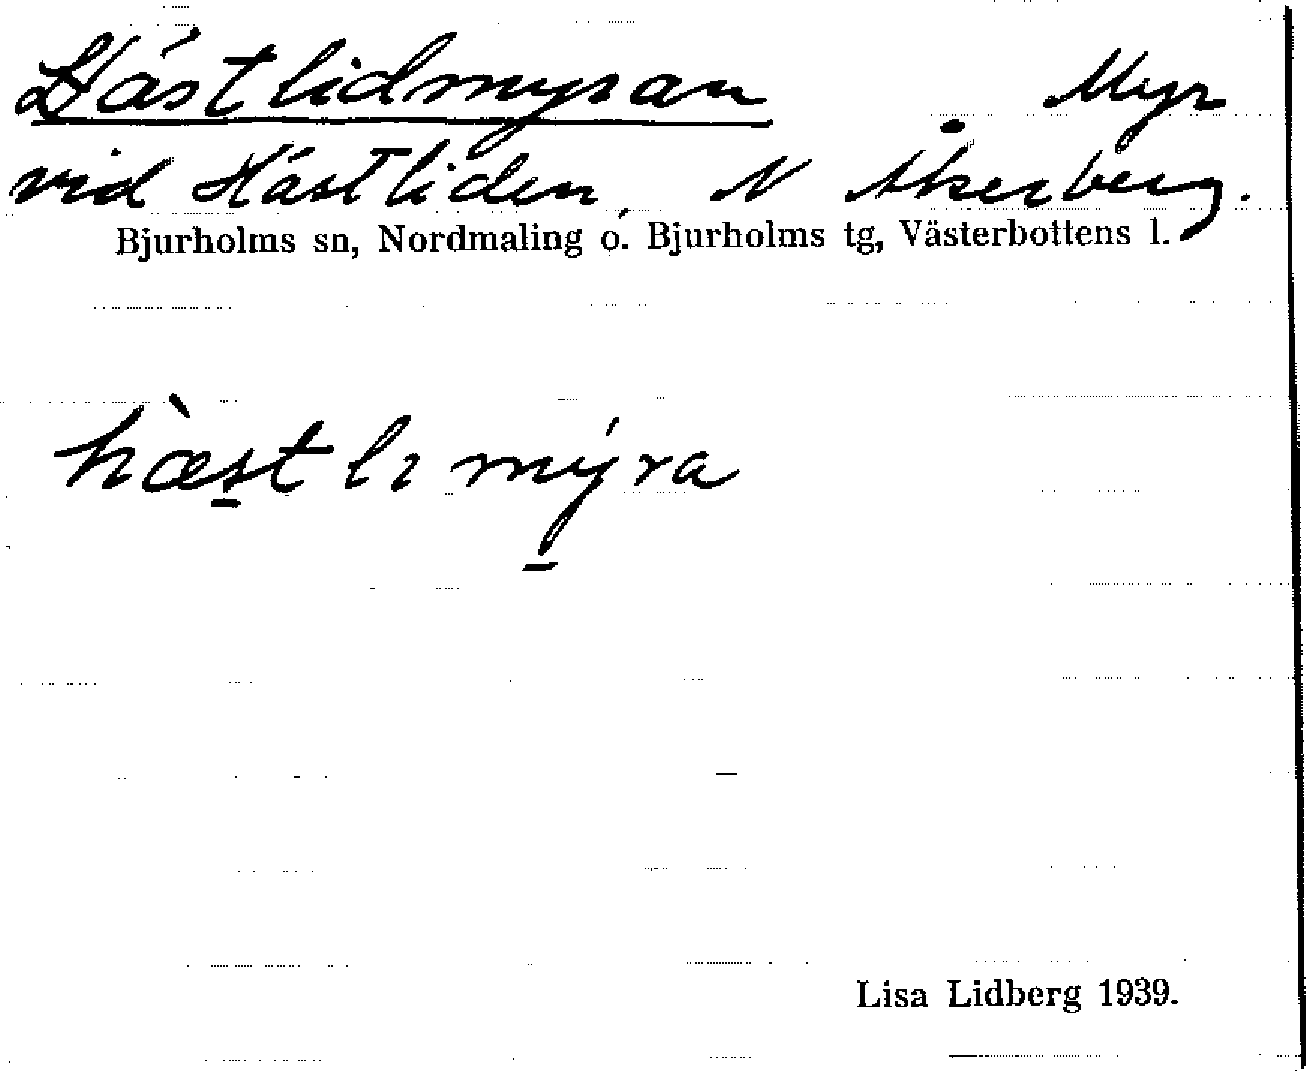 Hästlidmyran Myr
vid Hästliden, N Åkerberg.
Bjurholms sn, Nordmaling o. Bjurholms tg, Västerbottens l.
hæ̀s̱t lı mý̱ra
Lisa Lidberg 1939.